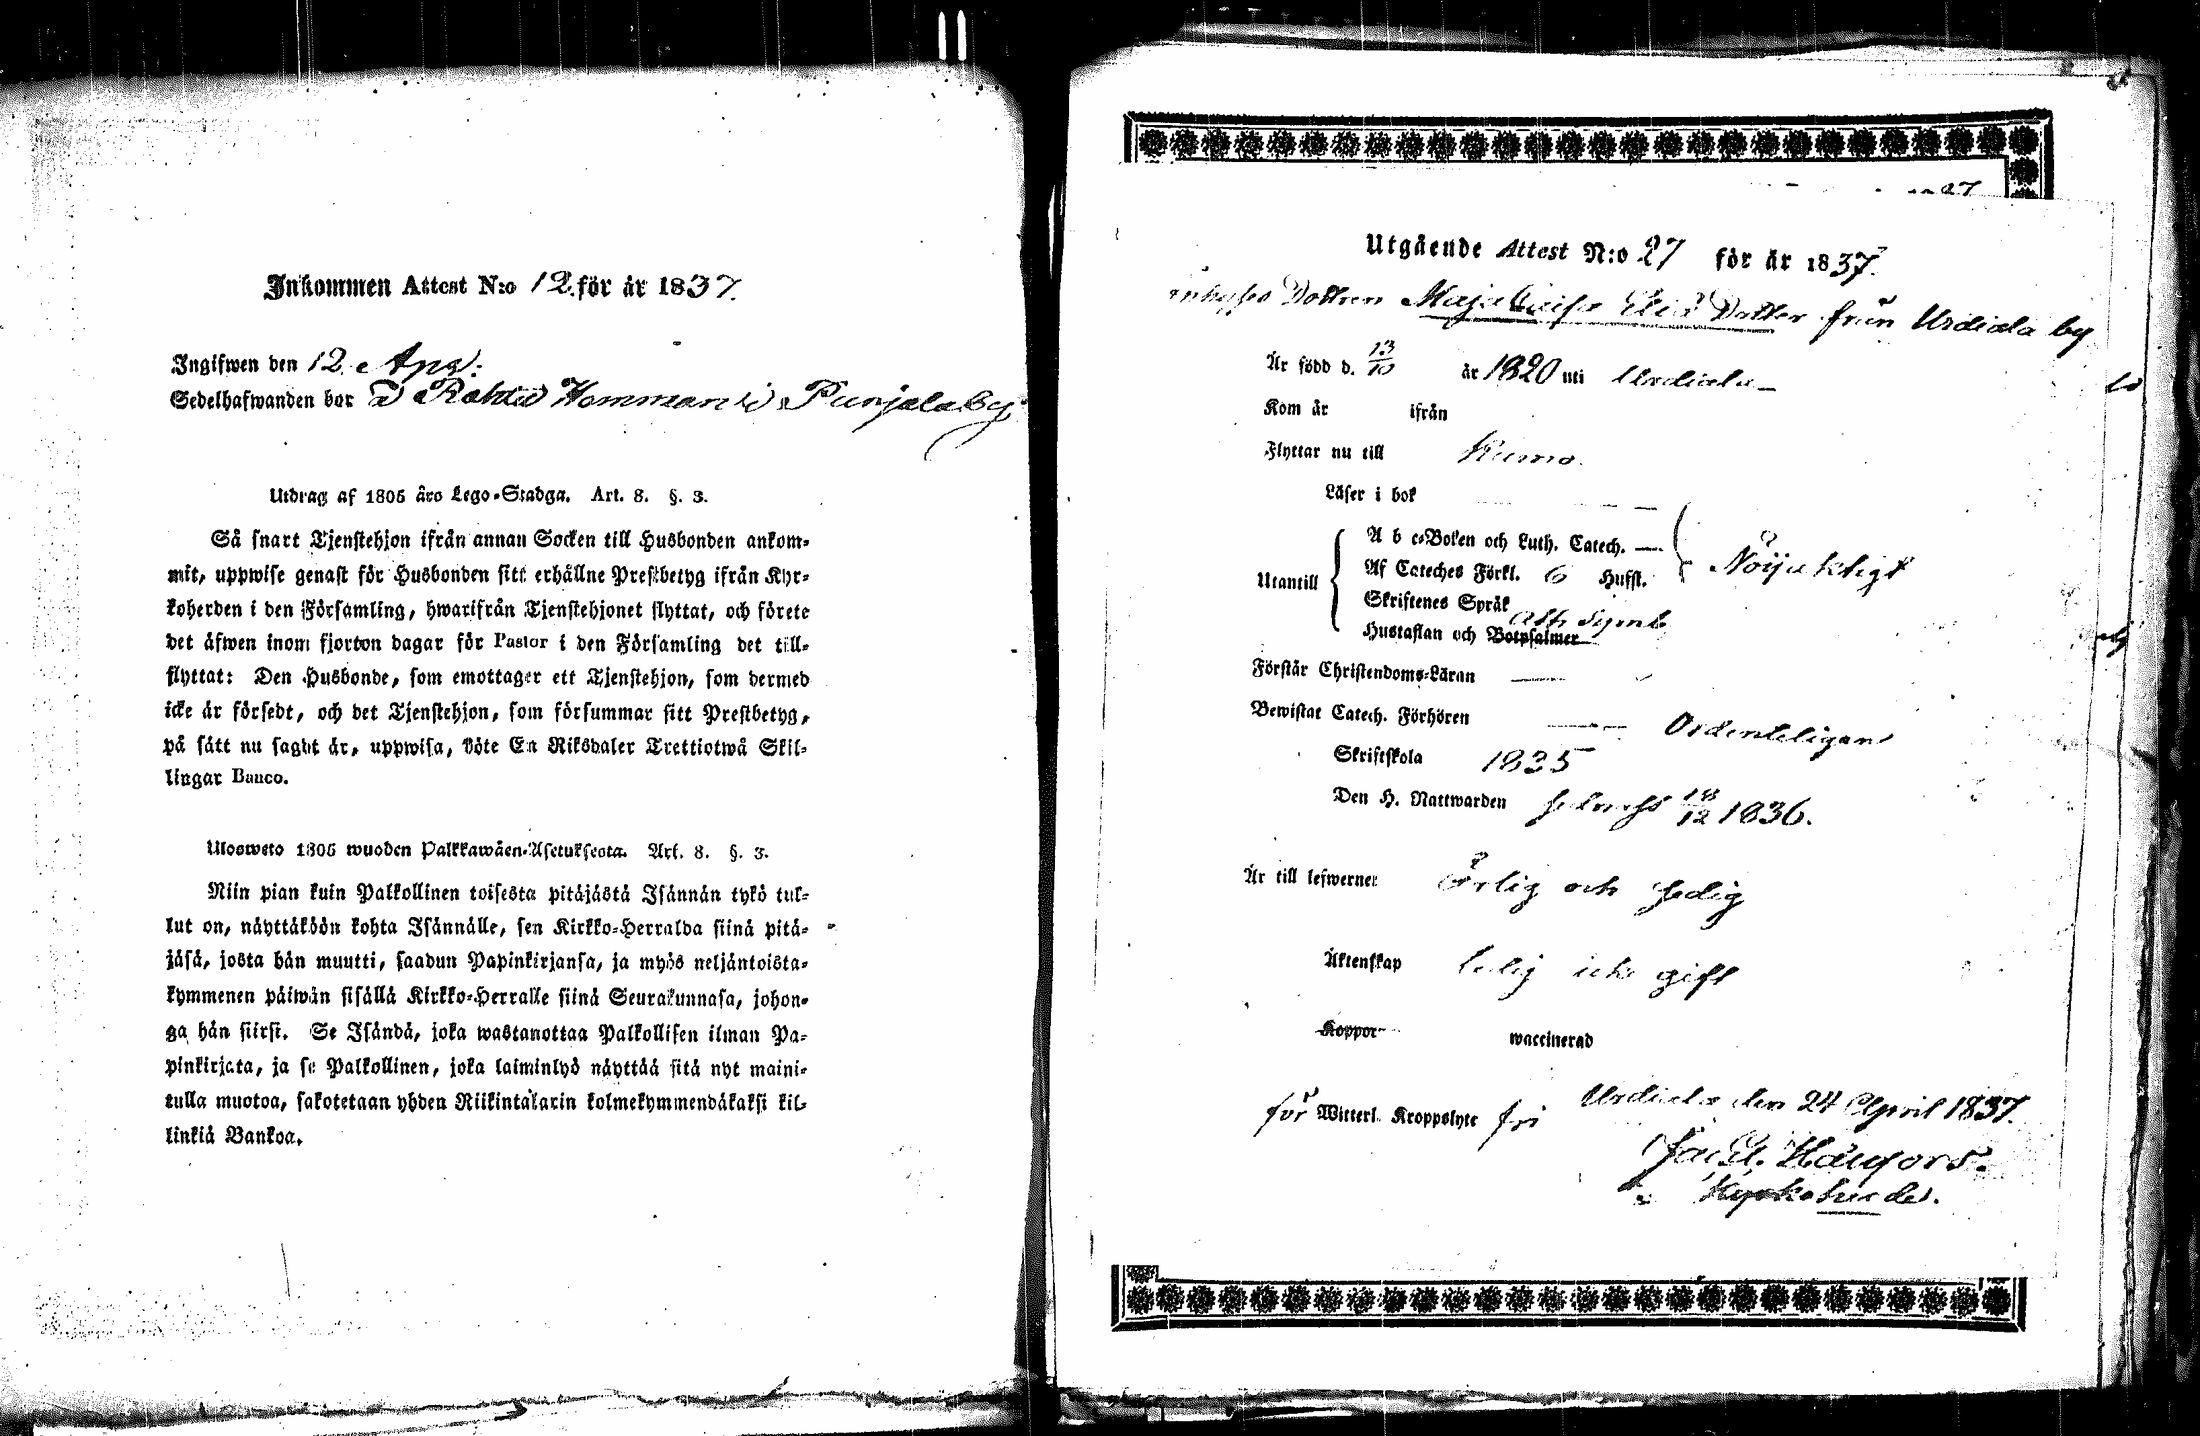 Inkommen Attest N:o 12. för år 1837.
Ingifwen den 12 Apr:
Sedelhafwanden bor Punjalaby
Utdrag af 1805 års Lego-Stadga. Art. 8. §. 3.
Så snart Tjenstehjon ifrån annan Socken till Husbonden ankom-
mit, uppwise genast för Husbonden sitt erhållne Prestbetyg ifrån Kyr-
koherden i den Församling, hwarifrån Tjenstehjonet flyttat, och förete
det äfwen inom fjorton dagar för Pastor i den Församling det till-
flyttat: Den Husbonde, som emottager ett Tjenstehjon, som dermed
icke är försedt, och det Tjenstehjon, som försummar sitt Prestbetyg,
på sätt nu sagdt är, uppwisa, böte En Riksdaler Trettiotwå Skil-
lingar Banco.
Ulosweto 1805 wuoden Palkkawäen-Asetuksesta. Art. 8. §. 3.
Niin pian kuin Palkollinen toisesta pitäjästä Isännän tykö tul-
lut on, näyttäköön kohta Isännälle, sen Kirkko-Herralda siinä pitä-
jäsä, josta hän muutti, saadun Papinkirjansa, ja myös neljäntoista-
kymmenen päiwän sisällä Kirkko-Herralle siinä Seurakunnasa, johon-
ga hän siirsi. Se Isändä, joka wastanottaa Palkollisen ilman Pa-
pinkirjata, ja se Palkollinen, joka laiminlyö näyttää sitä nyt maini-
tulla muotoa, sakotetaan yhden Riikintalarin kolmekymmendäkaksi kil-
linkiä Bankoa.
27
Utgående Attest N:o 27 för år 1837.
Dottren Maja Caisa Elias Dotter från Urdiala by
Är född d. 13/10 år 1820 uti Urdiala
Kom år ifrån
Flyttar nu till Kumo.
Läser i bok
Utantill
A b c-Boken och Luth. Catech.
Af Cateches Förkl. 6 Hufst. Nöijaktigt
Skriftenes Språk
Ath Symb
Hustaflan och Botpsalmer
Förstår Christendoms-Läran
Bewistat Catech. Förhören Ordenteligen
Skriftskola 1835
Den H. Nattwarden 18/12 1836.
Är till lefwernet Ärlig och sedig
Äktenskap ledig icke gift
Koppor waccinerad
för Witterl. Kroppslyte fri
Urdiala den 24 April 1837.
Kyrkoherde.